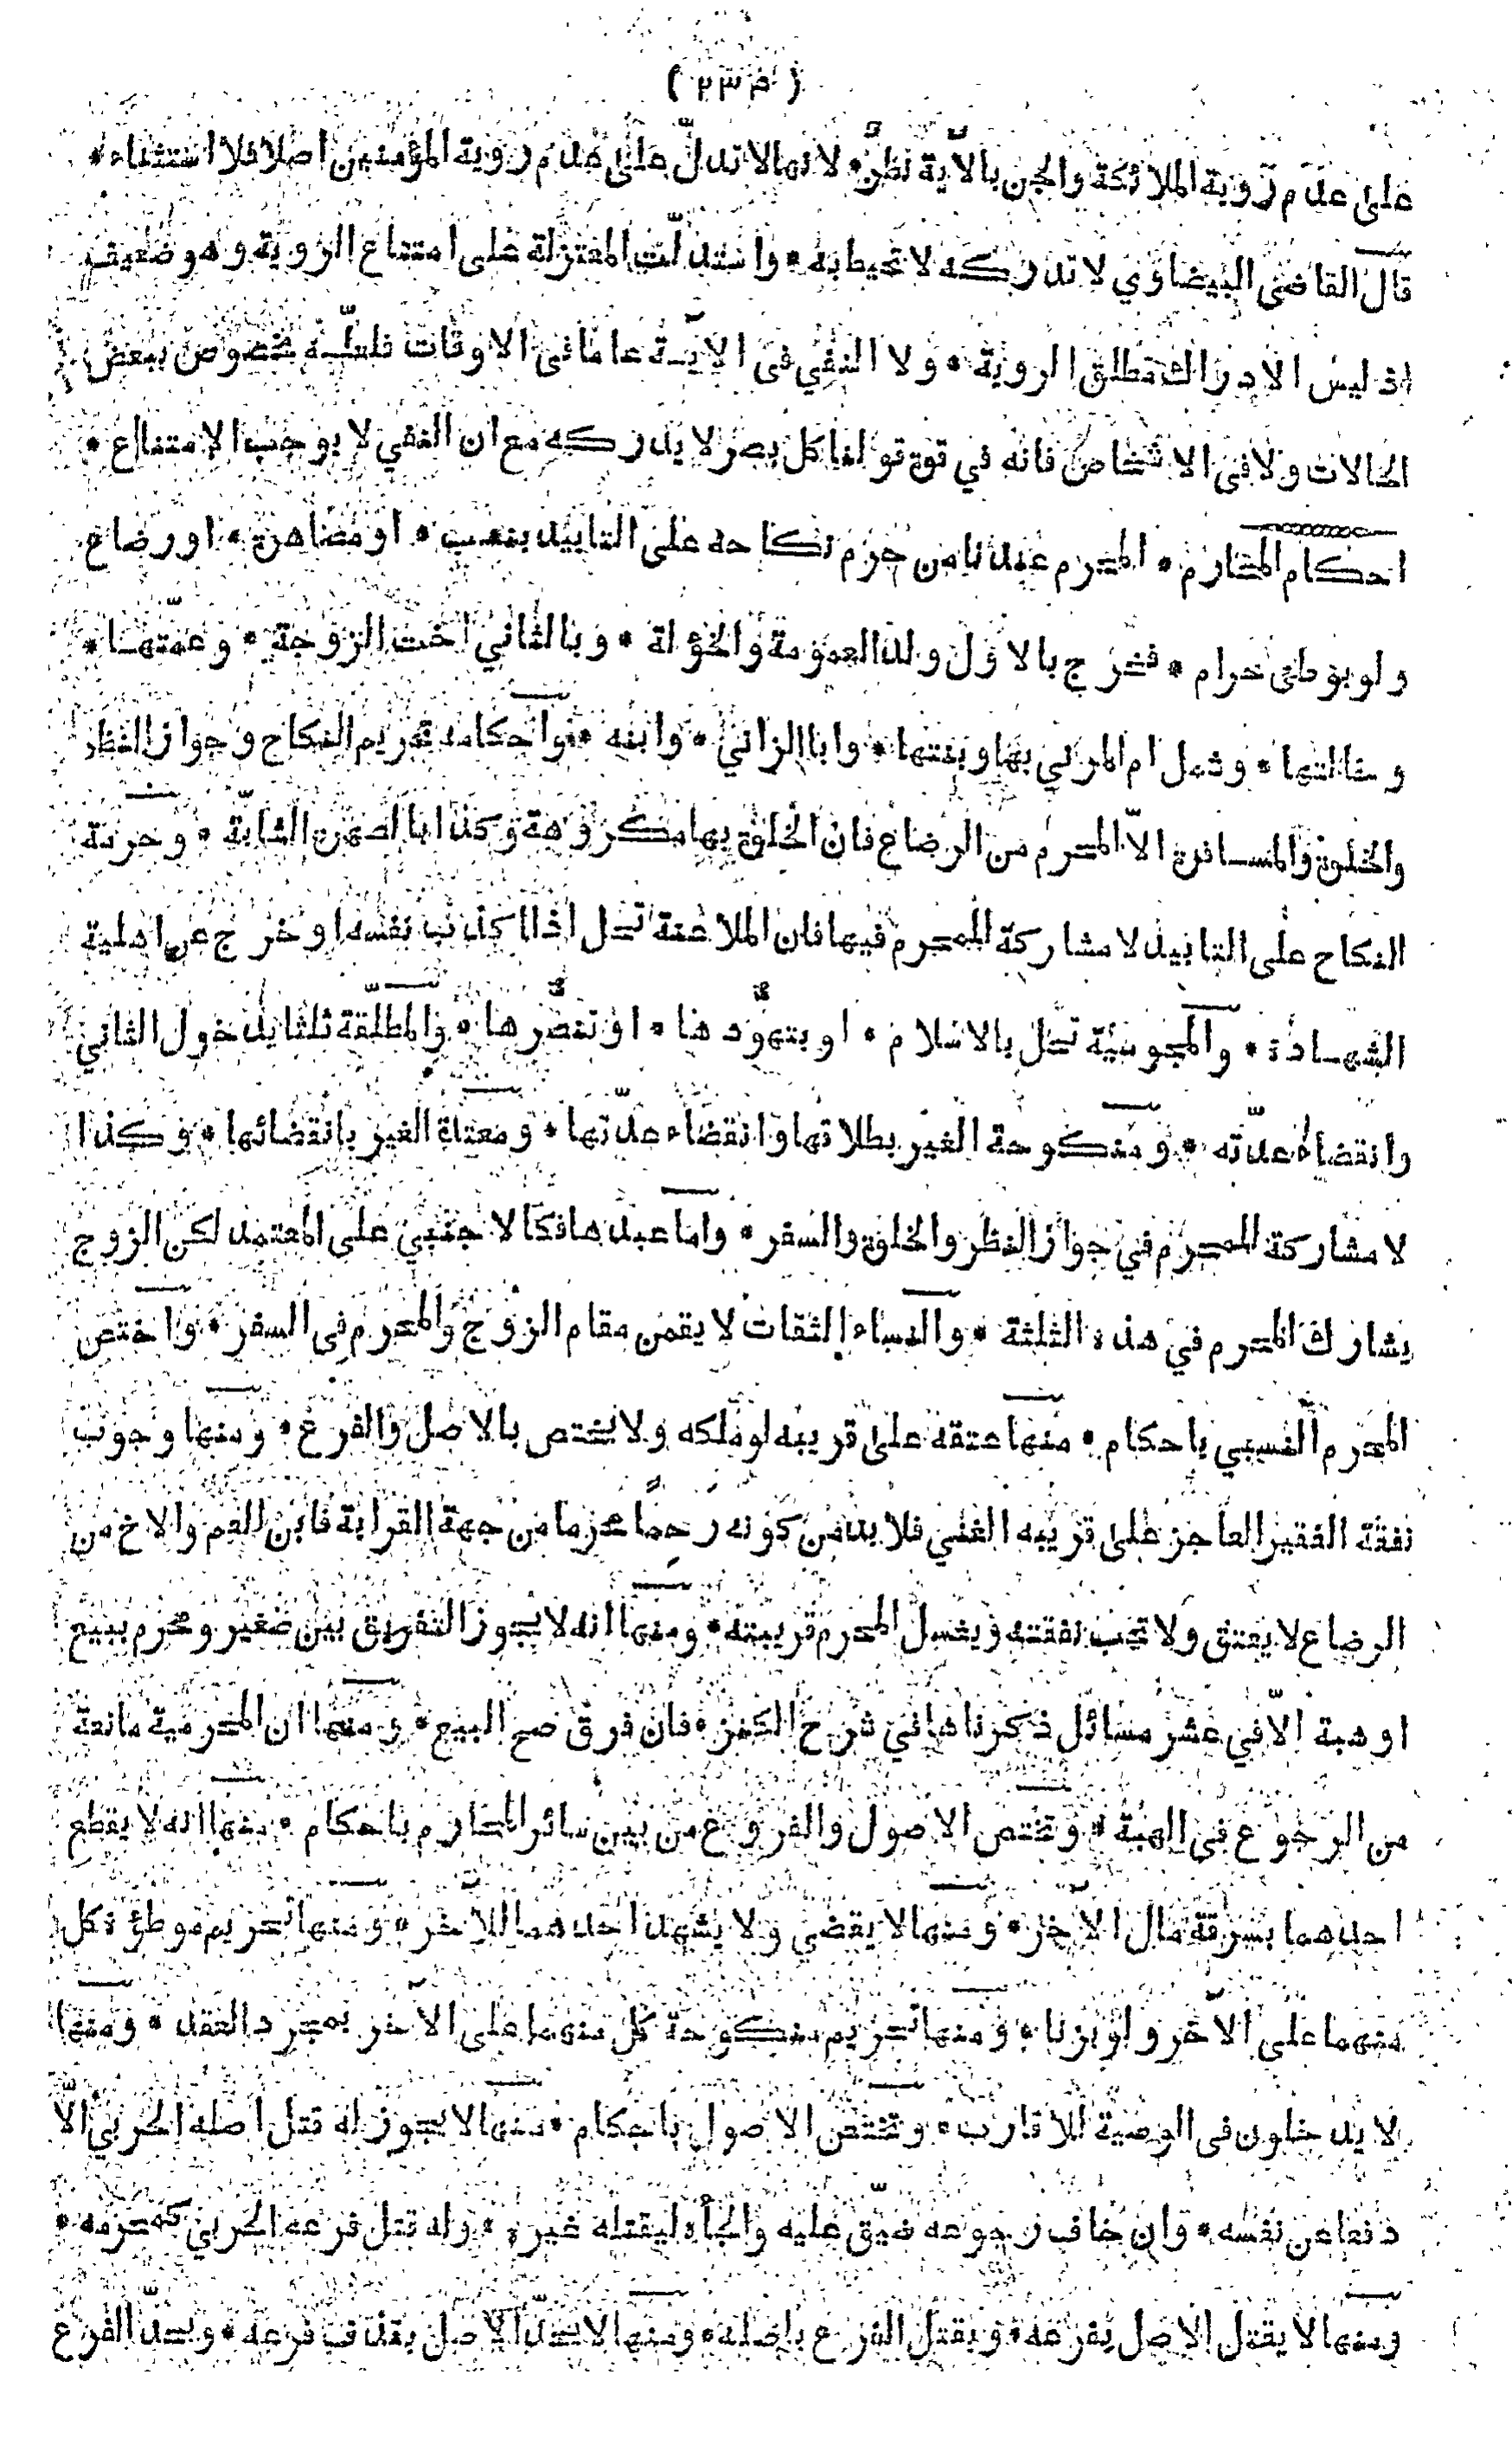 على عدم روية الملائكة والجن بالآية نظرٌ * لانها لا تدلّ على عدم روية المؤمنين اصلا فلا استثناء *
قال القاضى البيضاوي لا تدركه لا تحيط به * واستدلّت المعتزلة على امتناع الروية وهو ضعيف
اذ ليس الادراك مطلق الروية * ولا النفي فى الآيـة عاما فى الاوقات فلعلّـه مخصوص ببعض
الحالات ولا فى الاشخاص فانه في قوة قولنا كل بصر لا يدركه مع ان النفي لا يوجب الامتناع *
احكام المحارم * المحرم عندنا من حرم نكاحه على التابيد بنسب * او مصاهرة * او رضاع
ولو بوطئ حرام * فخرج بالاول ولد العمومة والخؤلة * وبالثاني اخت الزوجة * وعمّتهـا *
وخالتها * وشمل ام المزني بها وبنتها * وابا الزاني * وابنه * واحكامه تحريم النكاح وجواز النظر
والخلوة والمسـافرة الّا المحرم من الرضاع فان الخلوة بها مكروهة وكذا بالصهرة الشابّة * وحرمة
النكاح على التابيد لا مشاركة للمحرم فيها فان الملاعنة تحل اذا اكذب نفسه او خرج عن اهلية
الشهـادة * والمجوسيّة تحل بالاسلام * او بتهوّدها * او تنصّرها * والمطلّقة ثلثا بدخول الثاني
وانقضاء عدّته * ومنكوحة الغير بطلاقها وانقضاء عدّتها * ومعتدة الغير بانقضائها * وكذا
لا مشاركة للمحرم في جواز النظر والخلوة والسفر * واما عبدها فكالاجنبي على المعتمد لكن الزوج
يشارك المحرم في هذه الثلثة * والنساء الثقات لا يقمن مقام الزوج والمحرم فى السفر * واختص
المحرم النسبي باحكام * منها عتقه على قريبه لو ملكه ولا يختص بالاصل والفرع * ومنها وجوب
نفقة الفقير العاجز على قريبه الغني فلا بد من كونه رحمًا محرما من جهة القرابة فابن العم والاخ من
الرضاع لا يعتق ولا تجب نفقته ويغسل المحرم قريبته * ومنها انه لا يجوز التفريق بين صغير ومحرم ببيع
او هبة الّا في عشر مسائل ذكرناها في شرح الكنز * فان فرق صح البيع * ومنها ان المحرمية مانعة
من الرجوع فى الهبة * وتختص الاصول والفروع من بين سائر المحارم باحكام * منها انه لا يقطع
احدهما بسرقة مال الآخر * ومنها لا يقضي ولا يشهد احدهما للآخر * ومنها تحريم موطؤة كل
منهما على الآخر ولو بزنا * ومنها تحريم منكوحة كل منهما على الآخر بمجرد العقد * ومنها
لا يدخلون فى الوصية للاقارب * وتختص الاصول باحكام * منها لا يجوز له قتل اصله الحربي الّا
دفعا عن نفسه * وان خاف رجوعه ضيّق عليه والجأه ليقتله غيره * وله قتل فرعه الحربي كمحرمه *
ومنها لا يقتل الاصل بفرعه * ويقتل الفرع باصله * ومنها لا يحدّ الاصل بقذف فرعه * ويحدّ الفرع